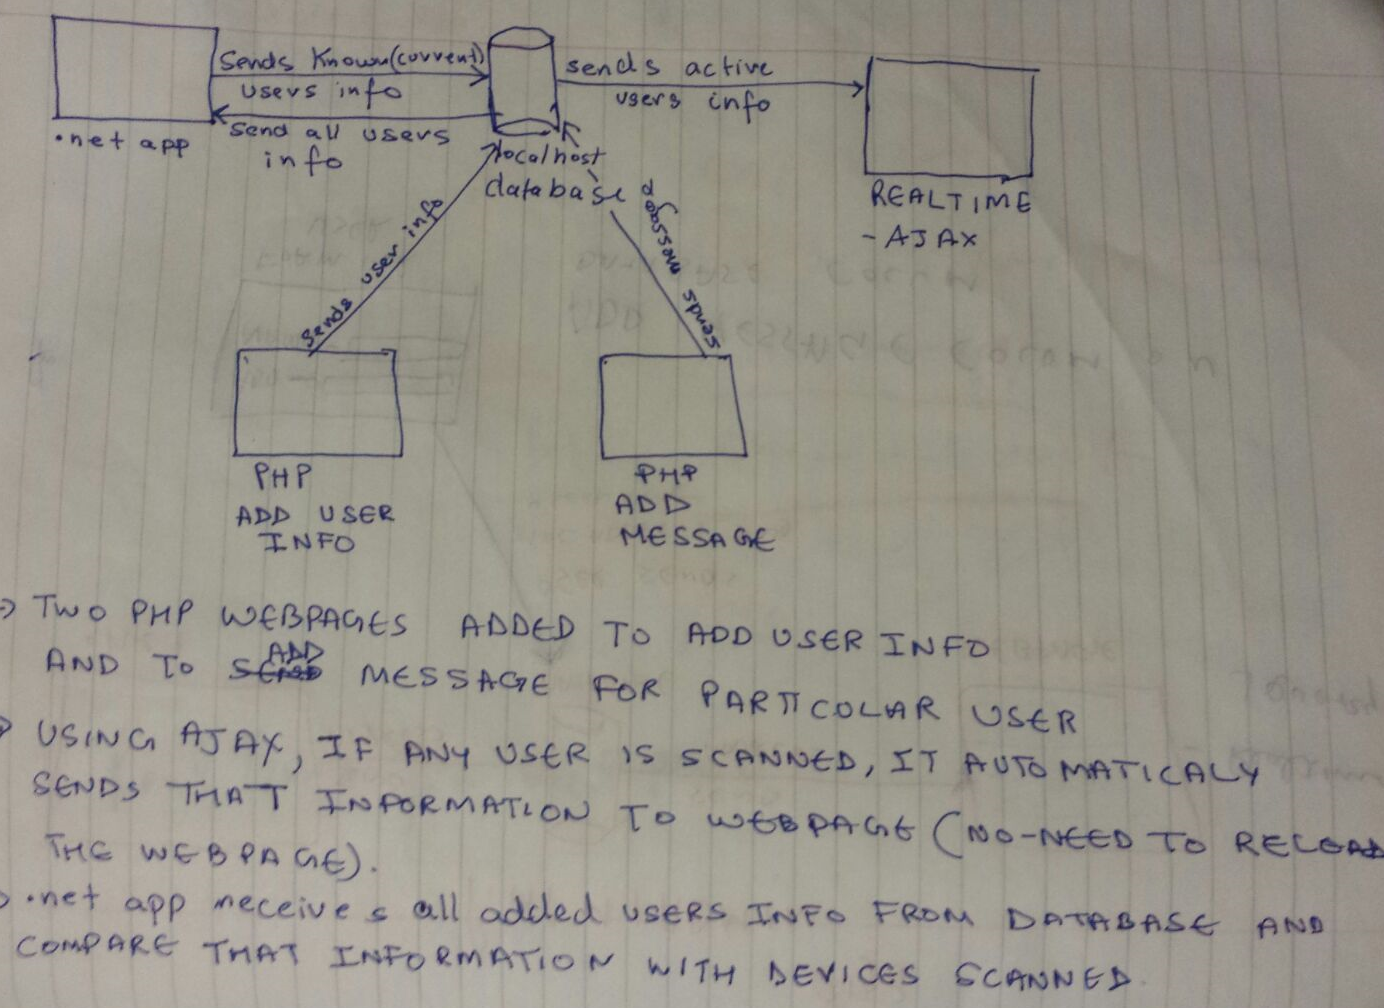 Sends Known(current)
users info
Send all users
info
.net app
localhost
database
sends active
users info
REALTIME
- AJAX
Sends user info
sends message
PHP
ADD USER
INFO
PHP
ADD
MESSAGE
→ TWO PHP WEBPAGES ADDED TO ADD USER INFO
AND TO ADD MESSAGE FOR PARTICOLAR USER
→ USING AJAX, IF ANY USER IS SCANNED, IT AUTOMATICALY
SENDS THAT INFORMATION TO WEBPAGE (NO-NEED TO RELOAD
THE WEBPAGE).
→ .net app receives all added USERS INFO FROM DATABASE AND
COMPARE THAT INFORMATION WITH DEVICES SCANNED.